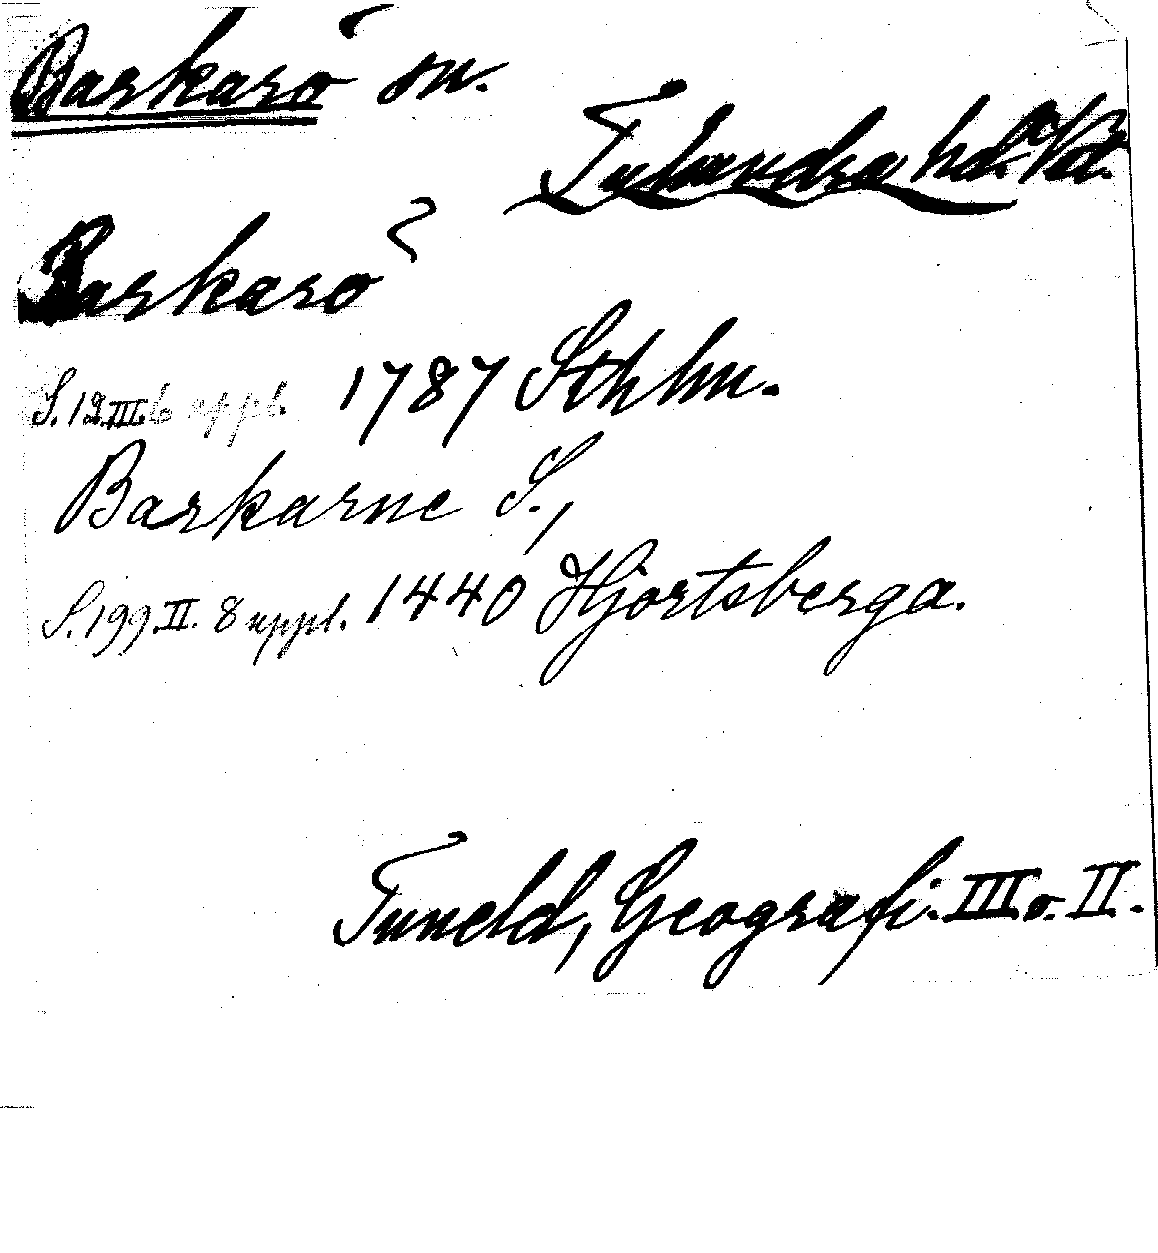 Barkarö sn.
Tuhundra hd. Vstm.
Barkarö
S. 12. III. 6 uppl. 1787 Sthlm.
Barkarne S.,
S. 199. II. 8 uppl. 1440 Hjortsberga.
Tuneld, Geografi. III o. II.